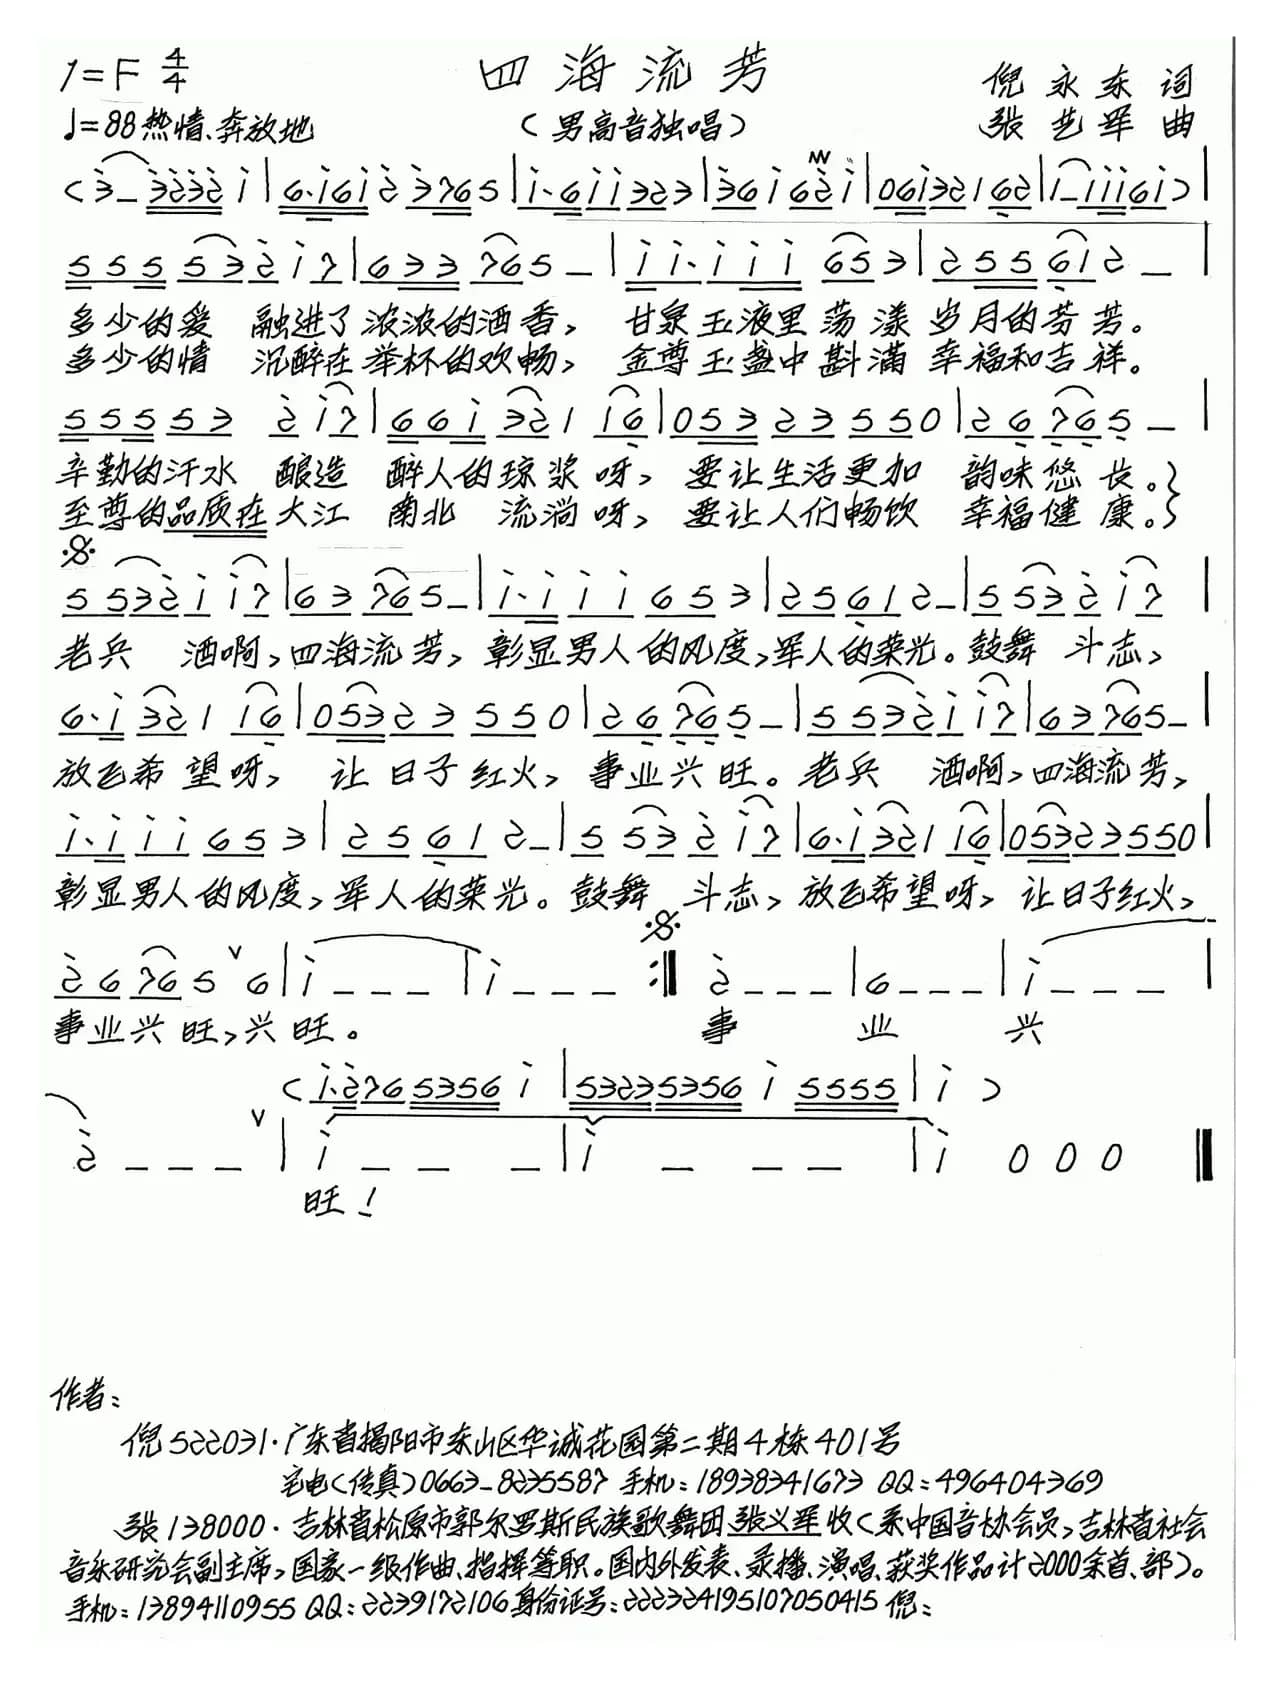 1=F 4/4 四海流芳 倪永东 词
♩=88 热情、奔放地 (男高音独唱) 张艺军 曲
(3̇ – 3̇2̇3̇2̇ 1̇ | 6·1̇61̇ 2̇ 3̇765 | 1̇·61̇1̇ 323 | 3̇61̇ 62̇1̇ | 061̇32162 | 1̇–1̇1̇1̇61̇) |
555 532̇1̇7 | 633 765 – | 1̇1̇·1̇1̇1̇ 653 | 255612 – |
多少的爱 融进了浓浓的酒香, 甘泉玉液里荡漾岁月的芬芳。
多少的情 沉醉在举杯的欢畅, 金尊玉盏中斟满幸福和吉祥。
55553 2̇1̇7 | 661̇ 321 16 | 053 23 550 | 26 765 – |
辛勤的汗水 酿造 醉人的琼浆呀, 要让生活更加 韵味悠长。}
至尊的品质在大江 南北 流淌呀, 要让人们畅饮 幸福健康。}
5532̇1̇1̇7 | 63765– | 1̇·1̇1̇1̇653 | 25612– | 5532̇1̇7 |
老兵 酒啊,四海流芳,彰显男人的风度,军人的荣光。鼓舞 斗志,
6·1̇321 16 | 05323 550 | 26765– | 5532̇1̇1̇7 | 63765– |
放飞希望呀, 让日子红火, 事业兴旺。老兵 酒啊,四海流芳,
1̇·1̇1̇1̇ 653 | 25612– | 553 2̇1̇7 | 6·1̇321 16 | 05323550 |
彰显男人的风度,军人的荣光。鼓舞 斗志, 放飞希望呀, 让日子红火,
2̇6765 ∨ 6 | 1̇ – – – | 1̇ – – – :‖ 2̇ – – – | 6 – – – | 1̇ – – – |
事业兴旺,兴旺。 事 业 兴
(1̇·2̇76 5356 1̇ | 53235356 1̇ 5555 | 1̇ )
2̇ – – – ∨ | 1̇ – – – | 1̇ – – – | 1̇ 0 0 0 ‖
旺!
作者:
倪522031·广东省揭阳市东山区华诚花园第二期4栋401号
宅电(传真)0663-8235587 手机:18938341673 QQ:496404369
张138000·吉林省松原市郭尔罗斯民族歌舞团张义军收(系中国音协会员,吉林省社会
音乐研究会副主席,国家一级作曲、指挥等职。国内外发表、录播、演唱、获奖作品计2000余首、部)。
手机:13894110955 QQ:2239172106 身份证号:222324195107050415 倪: